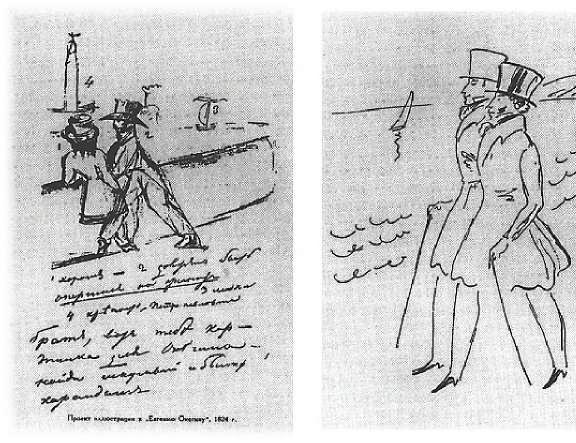 4
3
1 хорошъ — 2 долженъ быть
опершися на гранитъ 3 лодка
4 крѣпость, Петропавловская
Братъ, вотъ тебѣ кар—
тинка для Онегина —
найди искусный и быстрый
карандашъ
Проект иллюстрации к „Евгению Онегину", 1824 г.